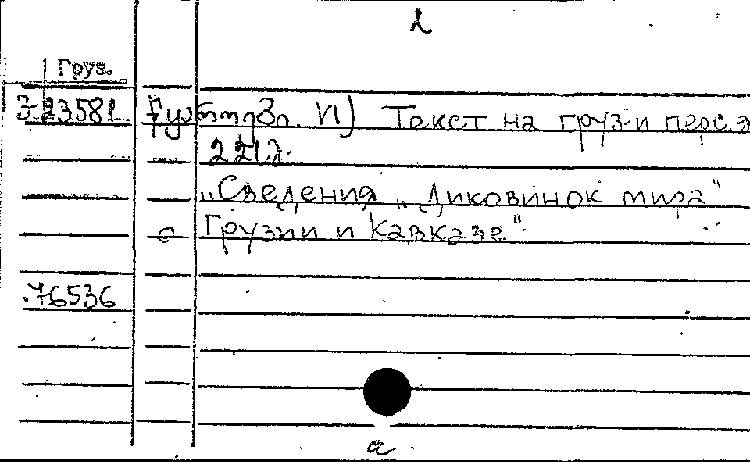 Груз.
3-23581 VI) Текст на груз. и перс. я
221 2.
„Сведения „Диковинок мира"
о Грузии и Кавказе".
.76536
а